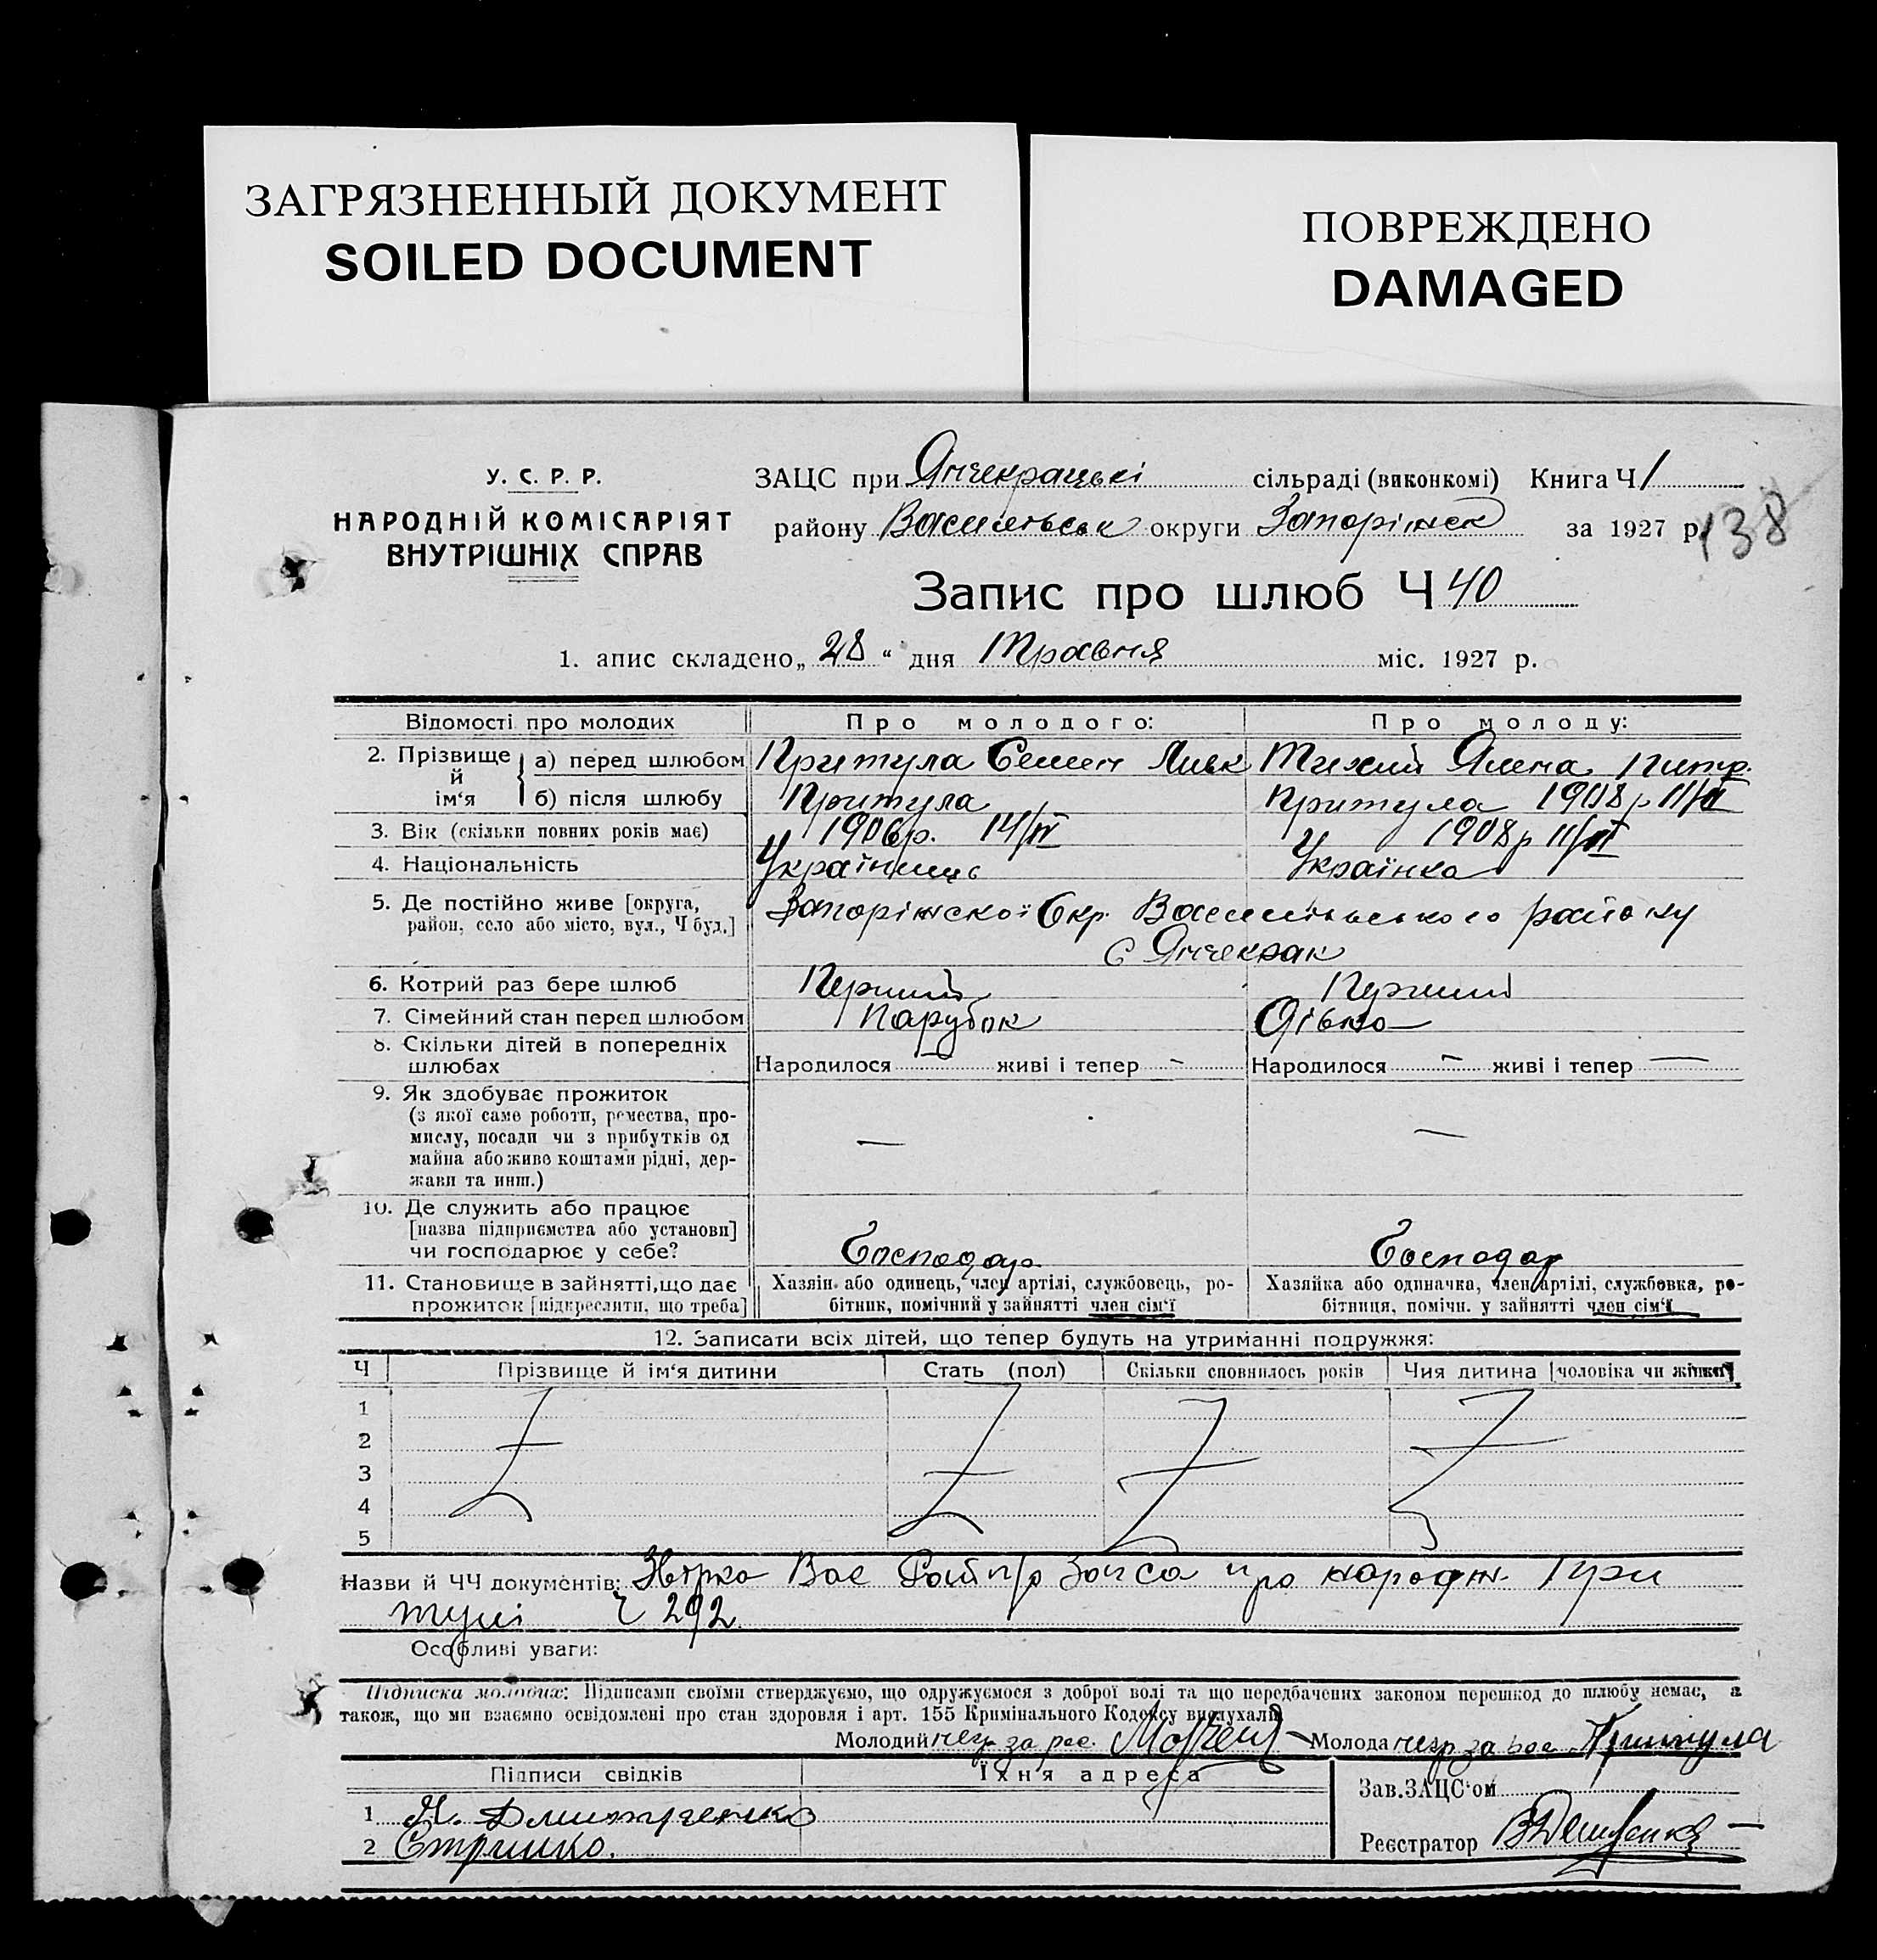 ЗАГРЯЗНЕННЫЙ ДОКУМЕНТ
SOILED DOCUMENT
ПОВРЕЖДЕНО
DAMAGED
У. С. Р. Р.
НАРОДНІЙ КОМІСАРІЯТ
ВНУТРІШНІХ СПРАВ
ЗАЦС при Янчекрацькі сільраді (виконкомі) Книга Ч 1
району Васильівськ округи Запоріжск за 1927 р.
138
Запис про шлюб Ч 40
1. апис складено „ 28 “ дня Травня міс. 1927 р.
Відомості про молодих Про молодого: Про молоду:
2. Прізвище й ім‘я а) перед шлюбом Притула Семен Тихий Ялена
б) після шлюбу Притула Притула 1908 р 11/VI
3. Вік (скільки повних років має) 1906 р. 14/IV 1908 р 11/VI
4. Національність Українець Українка
5. Де постійно живе [округа, Запоріжскої Окр. Васильівського району
район, село або місто, вул., Ч буд.] с Янчекрак
6. Котрий раз бере шлюб Перший Перший
7. Сімейний стан перед шлюбом Парубок Дівка
8. Скільки дітей в попередніх
шлюбах Народилося — живі і тепер — Народилося — живі і тепер —
9. Як здобуває прожиток
(з якої саме роботи, ремества, про-
мислу, посади чи з прибутків од — —
майна або живе коштами рідні, дер-
жави та инш.)
10. Де служить або працює
[назва підприємства або установи]
чи господарює у себе? Господар Господар
11. Становище в зайнятті, що дає Хазяїн або одинець, член артілі, службовець, ро- Хазяйка або одиначка, член артілі, службовка, ро-
прожиток [підкреслити, що треба] бітник, помічний у зайнятті член сім‘ї бітниця, помічн. у зайнятті член сім‘ї
12. Записати всіх дітей, що тепер будуть на утриманні подружжя:
Ч Прізвище й ім‘я дитини Стать (пол) Скільки сповнилось років Чия дитина [чоловіка чи жінки]
1
2
3
4
5
Назви й ЧЧ документів: Вас про народж. При
тулі ч 292
Особливі уваги:
Підписка молодих: Підписами своїми стверджуємо, що одружуємося з доброї волі та що передбачених законом перешкод до шлюбу немає, а
також, що ми взаємно освідомлені про стан здоровля і арт. 155 Кримінального Кодексу вислухали
Молодий за Молода за Притула
Підписи свідків Їхня адреса Зав. ЗАЦС‘ом
1 Дмитренко
2 Стришко. Реєстратор